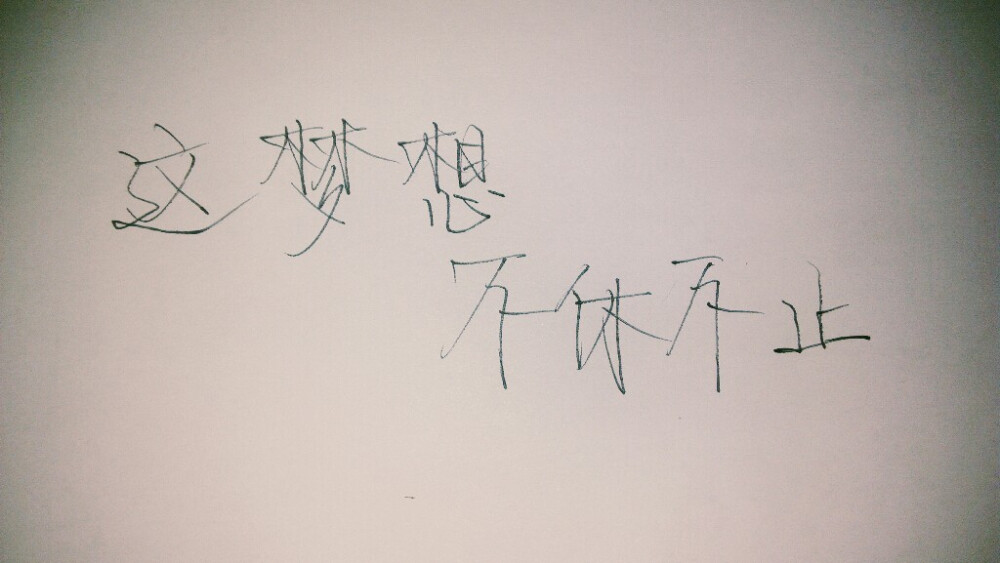 这梦想
不休不止